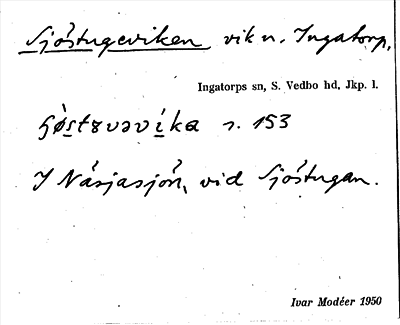 Sjöstugeviken vik n. Ingatorp,
Ingatorps sn, S. Vedbo hd, Jkp. l.
s. 153
I Näsjasjön, vid Sjöstugan.
Ivar Modéer 1950